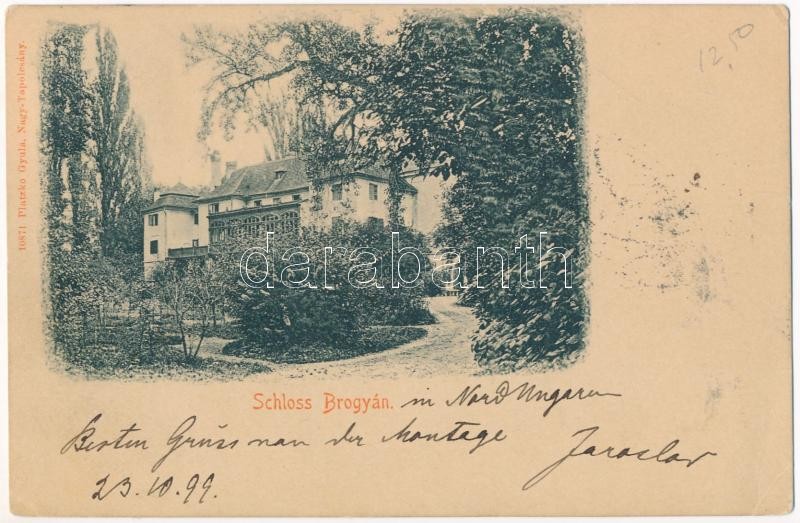 10871 Platzko Gyula, Nagy-Tapolcsány.
12,50
darabanth
Schloss Brogyán. in Nord Ungarn
Besten Gruss von der Montage
Jaroslav
23.10.99.